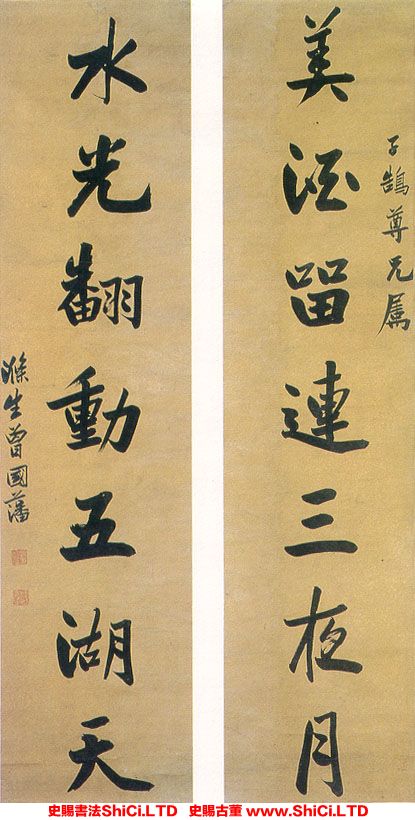 子鵠尊兄属
美酒留連三夜月
水光翻動五湖天
滌生曾國藩
史賜書法ShiCi.LTD 史賜古董 www.ShiCi.LTD